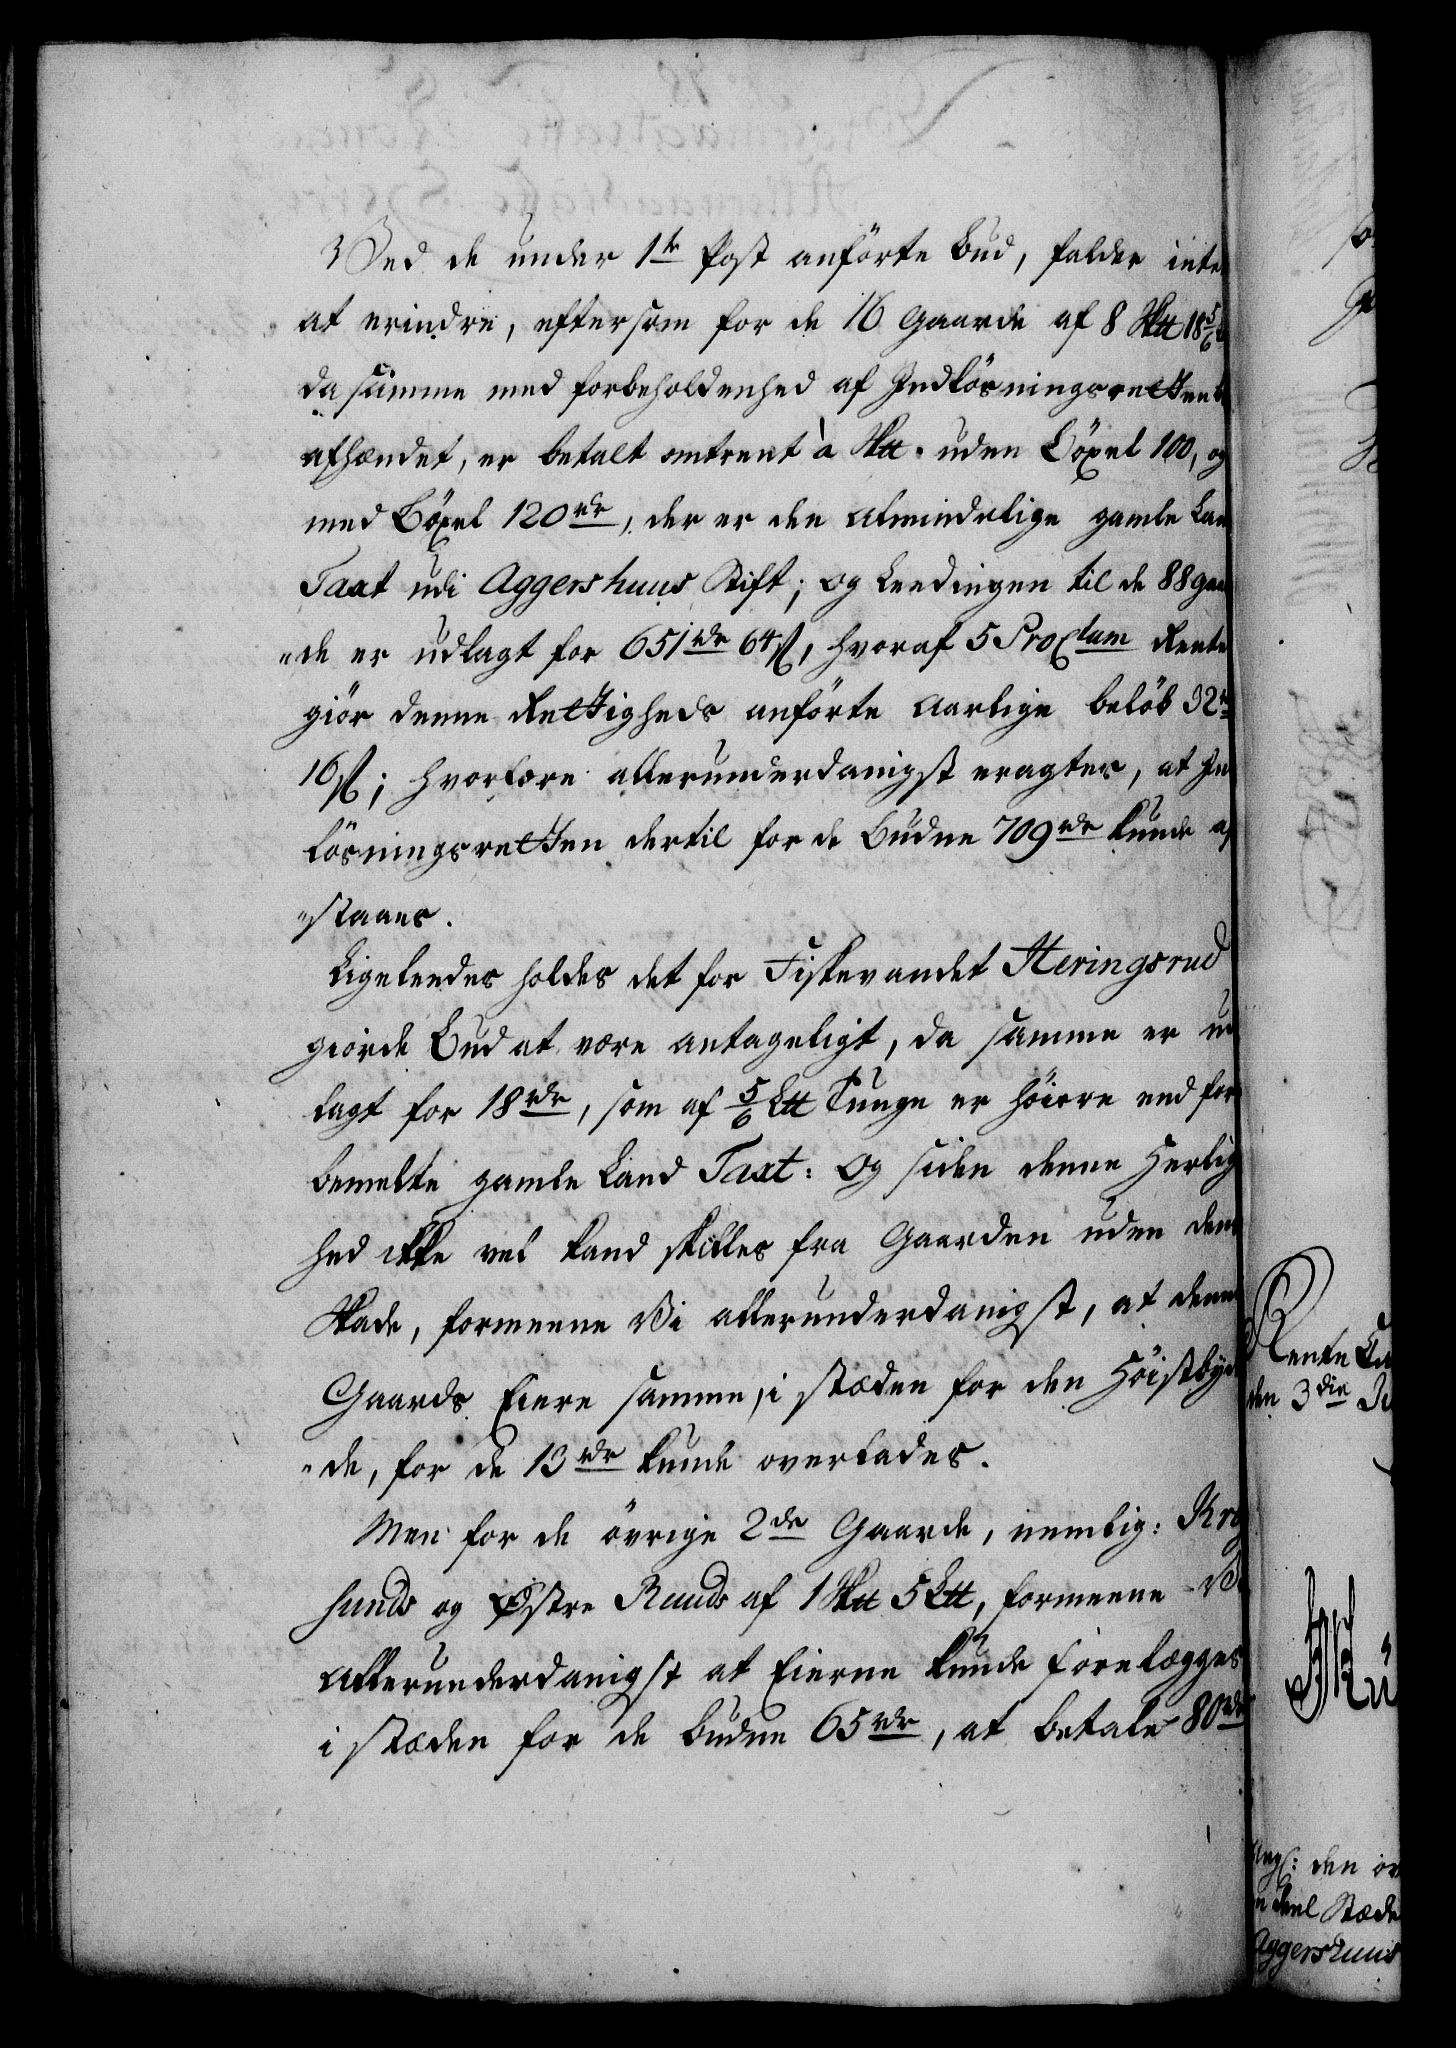 Ved de under 1te Post anförte Bud, falder inte
at erindre, eftersom for de 16 Gaarde af 8 Sk℔ 18 5/6
da samme med forbeholdenhed af Indlösningsretten
afhændet, er betalt omtrent à Sk℔. uden Böxel 100, og
med Böxel 120 rdr, der er den Almindelige gamle Lan
Taxt udi Aggershuus Stift; og Leedingen til de 88 gaa
"de er udlagt for 651 rdr 64 ß, hvoraf 5 ProCtum Rente
giör denne Rettigheds anförte Aarlige belöb 32 r
16 ß; hvorfore allerunderdanigst eragtes, at In
lösningsretten dertil for de Budne 709 rdr kunde af
"staaes.
Ligeleedes holdes det for Fiskevandet Heringsrud
giorde Bud at være antageligt, da samme er ud
lagt for 18 rdr, som af 5/6 L℔ Tunge er höiere end for
bemelte gamle Land Taxt: Og siden denne Herlig
hed ikke vel kand skilles fra Gaarden uden dens
Skade, formeene Vi allerunderdanigst, at denne
Gaards Eiere samme, i stæden for den Höistbyd
"de, for de 13 rdr kunde overlades.
Men for de övrige 2de Gaarde, nemlig: Krog
hunds og Østre Ruuds af 1 Sk℔ 5 L℔, formeene Vi
allerunderdanigst at Eierne kunde forelægges
i stæden for de budne 65 rdr, at betale 80 rdr
Rente Ca
den 3die Ju
den öv
deel Stæde
Aggershuus